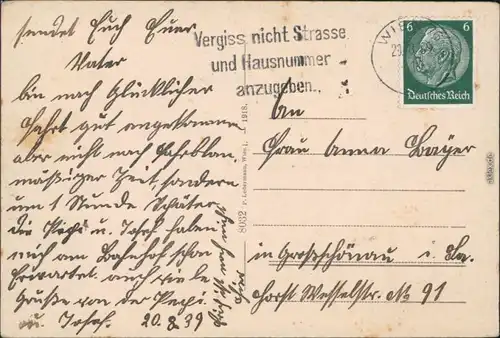 sendet Euch Euer
Vater
bin nach Glücklicher
Fahrt gut angekommen
aber nicht nach Fahrplan
mäßiger Zeit, sondern
um 1 Stunde Später
die Pepi u. Josef haben
mich am Bahnhof schon
Erwartet. auch viele
Grüße von der Pepi
u. Josef. 20. 8. 39
Vergiss nicht Strasse
und Hausnummer
anzugeben.
WIE
6 6
Deutsches Reich
8032 P. Ledermann, Wien I. 1918.
An
Frau Anna Bayer
in Großschönau i. Sa.
Horst Wesselstr. № 91